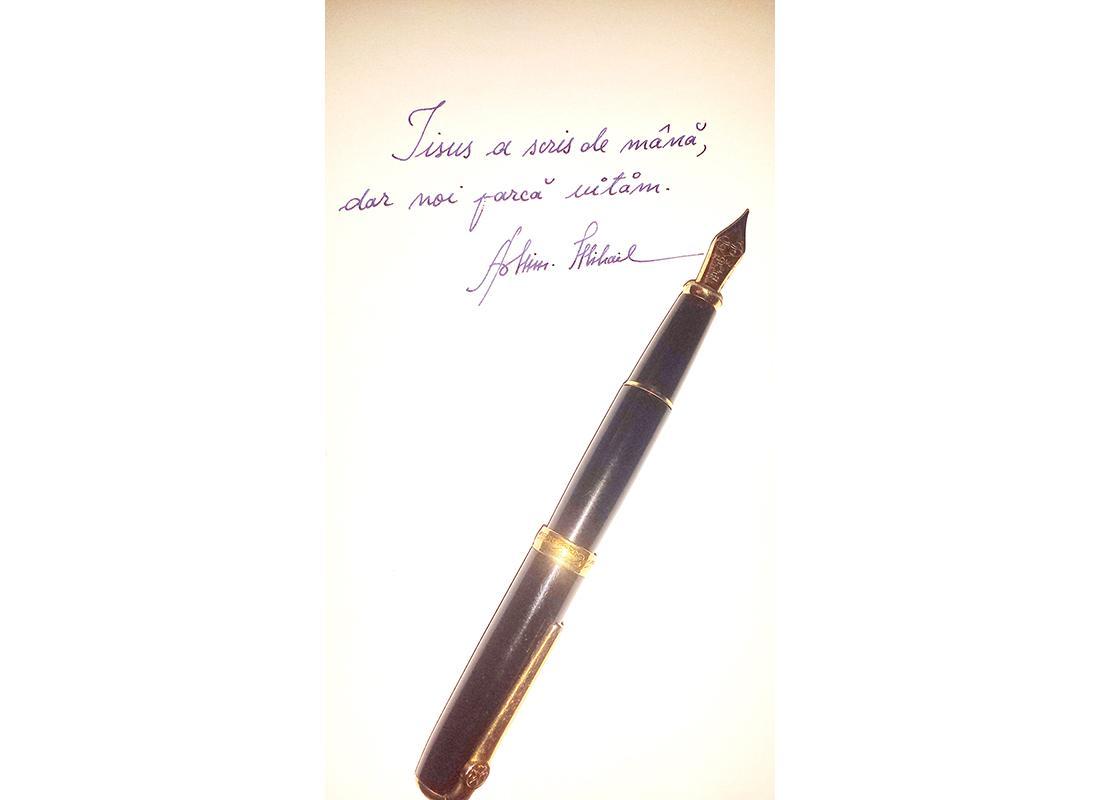 Iisus a scris de mână,
dar noi parcă uităm.
Mihail